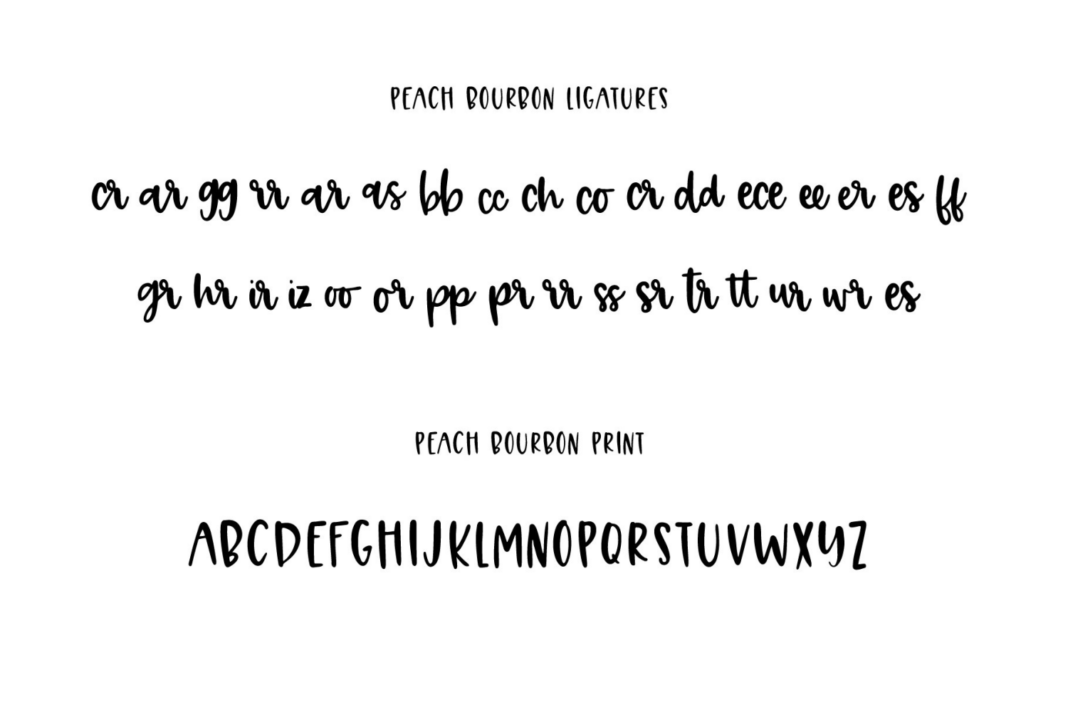 PEACH BOURBON LIGATURES
cr ar gg rr ar as bb cc ch co cr dd ece ee er es ff
gr hr ir iz oo or pp pr rr ss sr tr tt ur wr es
PEACH BOURBON PRINT
ABCDEFGHIJKLMNOPQRSTUVWXYZ